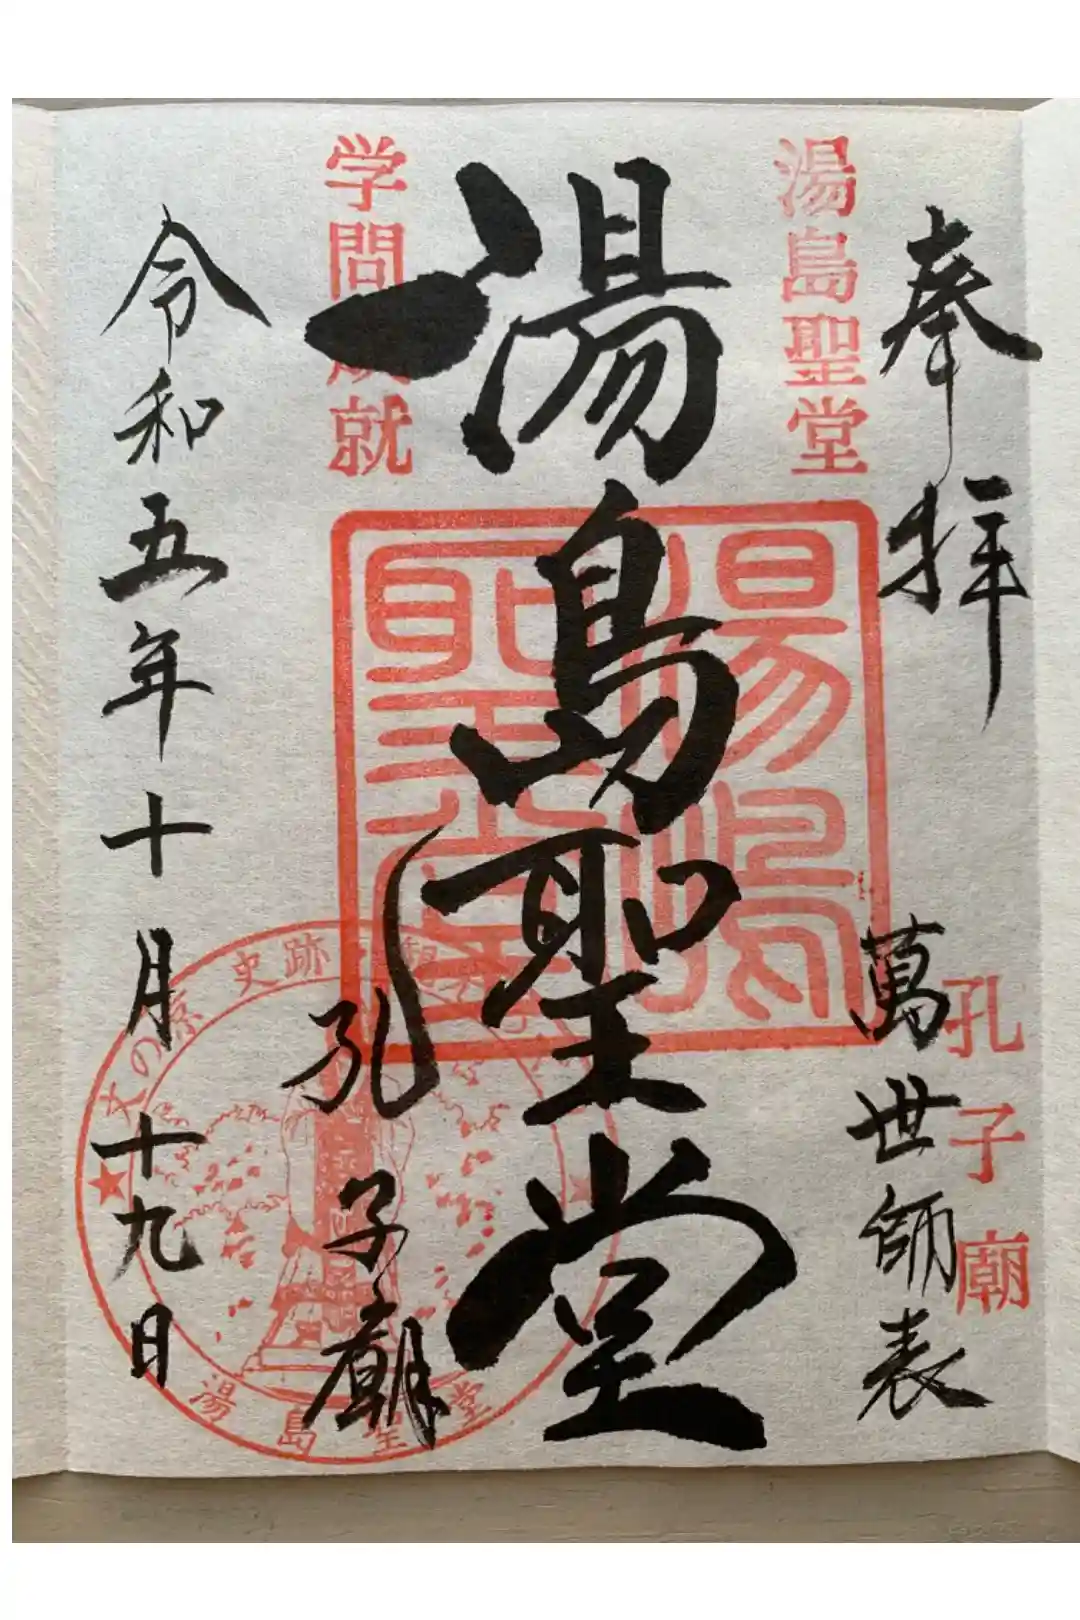 奉拝
萬世師表
湯島聖堂
孔子廟
湯島聖堂
湯島聖堂
孔子廟
学問成就
令和五年十月十九日
文の京 史跡
湯島聖堂